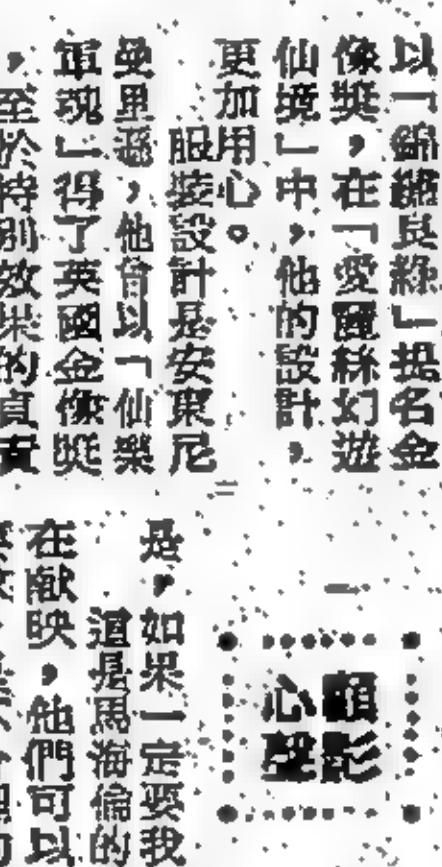 以「錦繡良緣」提名金
像獎，在「愛麗絲幻遊
仙境」中，他的設計，
更加用心。
服裝設計是安東尼
曼里遜，他曾以「仙樂
軍魂」得了英國金像獎
，至於特別效果的負責
顧影
心聲
是，如果一定要我
這是馬海倫的
在獻映，他們可以